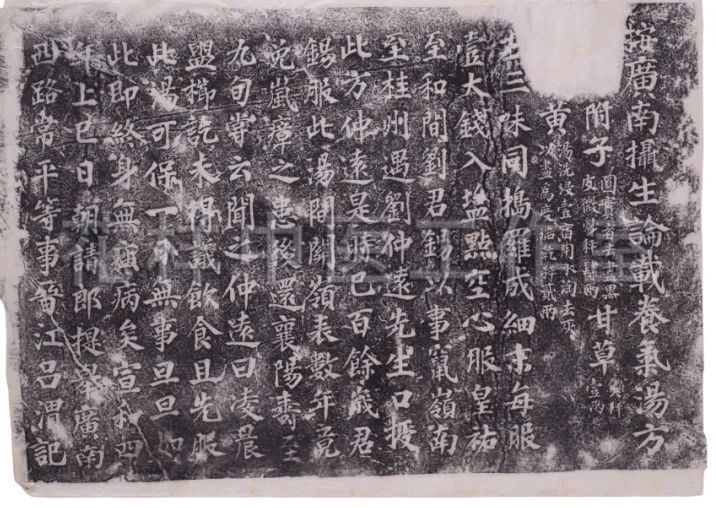 按廣南攝生論載養氣湯方
附子圓實者去盡黑皮微炒秤肆兩甘草炙秤壹兩
黃湯洗浸壹宿用水淘去灰以盡為度焙乾秤貳兩
三味同搗羅成細末每服
壹大錢入鹽點空心服皇祐
至和間劉君錫以事竄嶺南
至桂州遇劉仲遠先生口授
此方仲遠是時已百餘歲君
錫服此湯間關嶺表數年竟
免嵐瘴之患後還襄陽壽至
九旬嘗云聞之仲遠曰凌晨
盥櫛訖未得議飲食且先服
此湯可保一日無事旦旦如
此即終身無疾病矣宣和四
年上巳日朝請郎提舉廣南
西路常平等事晉江呂渭記
中医工作室